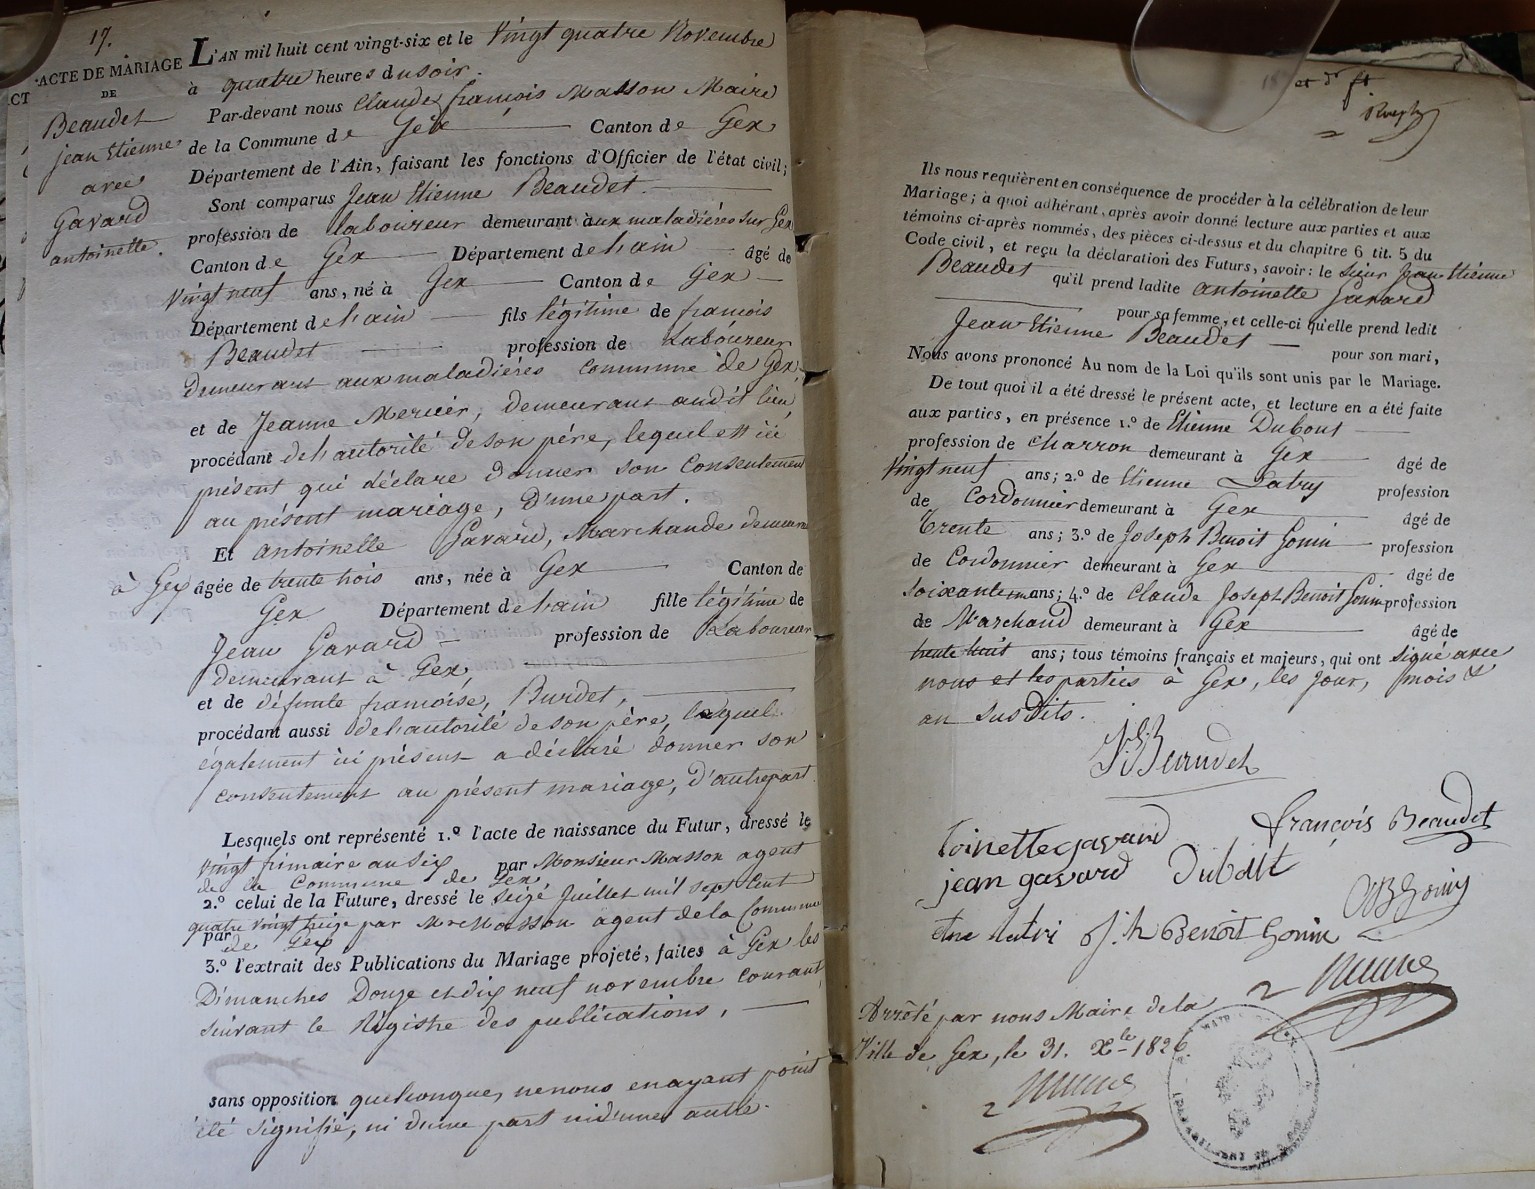 17.
ACTE DE MARIAGE
DE
Beaudet
jean Etienne
avec
Gavard
antoinette.
ACT
L'AN mil huit cent vingt-six et le Vingt quatre Novembre
à quatre heures du soir.
Par-devant nous Claude françois Masson Maire
de la Commune de Gex Canton de Gex
Département de l'Ain, faisant les fonctions d'Officier de l'état civil;
Sont comparus Jean Etienne Beaudet.
profession de laboureur demeurant aux maladiéres sur Gex
Canton de Gex Département de l'ain âgé de
Vingt neuf ans, né à Gex Canton de Gex
Département de l'ain fils légitime de françois
Beaudet profession de Laboureur
demeurant aux maladiéres Commune de Gex,
et de Jeanne Mercier, demeurant audit lieu,
procédant de l'autorité de son père, lequel est ici
présent qui déclare donner son Consentement
au présent mariage, D'une part.
Et antoinette Gavard, Marchande demeurant
à Gex âgée de trente trois ans, née à Gex Canton de
Gex Département de l'ain fille légitime de
Jean Gavard profession de Laboureur
demeurant à Gex,
et de défunte francoise, Burdet,
procédant aussi de l'autorité de son père, lequel
également ici présent a déclaré donner son
consentement au présent mariage, d'autre part.
Lesquels ont représenté 1.º l'acte de naissance du Futur, dressé le
Vingt frimaire an Six par Monsieur Masson agent
de la Commune de Gex
2.º celui de la Future, dressé le seize Juillet mil sept Cent
quatre Vingt treize par Mr Masson agent de la Commune
par de Gex
3.º l'extrait des Publications du Mariage projeté, faites à Gex les
Dimanches Douze et dix neuf novembre courant,
suivant le Régistre des publications,
sans opposition quelconque, ne nous en ayant point
été signifié, ni d'une part ni d'une autre.
18 et dr ft
Ils nous requièrent en conséquence de procéder à la célébration de leur
Mariage; à quoi adhérant, après avoir donné lecture aux parties et aux
témoins ci-après nommés, des pièces ci-dessus et du chapitre 6 tit. 5 du
Code civil, et reçu la déclaration des Futurs, savoir: le sieur Jean Etienne
Beaudet qu'il prend ladite antoinette Gavard
pour sa femme, et celle-ci qu'elle prend ledit
Jean Etienne Beaudet pour son mari,
Nous avons prononcé Au nom de la Loi qu'ils sont unis par le Mariage.
De tout quoi il a été dressé le présent acte, et lecture en a été faite
aux parties, en présence 1.º de Etienne Dubout
profession de Charron demeurant à Gex âgé de
Vingt neuf ans; 2.º de Etienne Latry profession
de Cordonnier demeurant à Gex âgé de
Trente ans; 3.º de Joseph Benoit Gonin profession
de Cordonnier demeurant à Gex âgé de
Soixante ans; 4.º de Claude Joseph Benoit Gonin profession
de Marchand demeurant à Gex âgé de
trente huit ans; tous témoins français et majeurs, qui ont signé avec
nous et les parties à Gex, les jour, mois &
an susdits.
J. E. Beaudet
françois Beaudet
toinette gavard
jean gavard Dubout
B Gonin
Etne latri Jh Benoit Gonin
Arrêté par nous Maire de la
Ville de Gex, le 31. Xbre 1826.